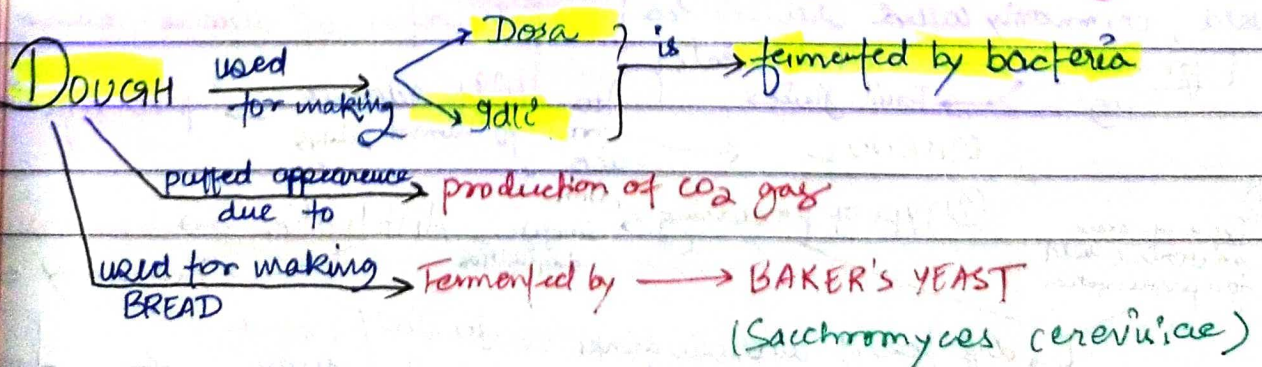 Dosa
DOUGH used for making Idli } is → fermented by bacteria
puffed appearence due to → production of CO2 gas
used for making BREAD → Fermented by → BAKER'S YEAST
(Sacchromyces cerevisiae)